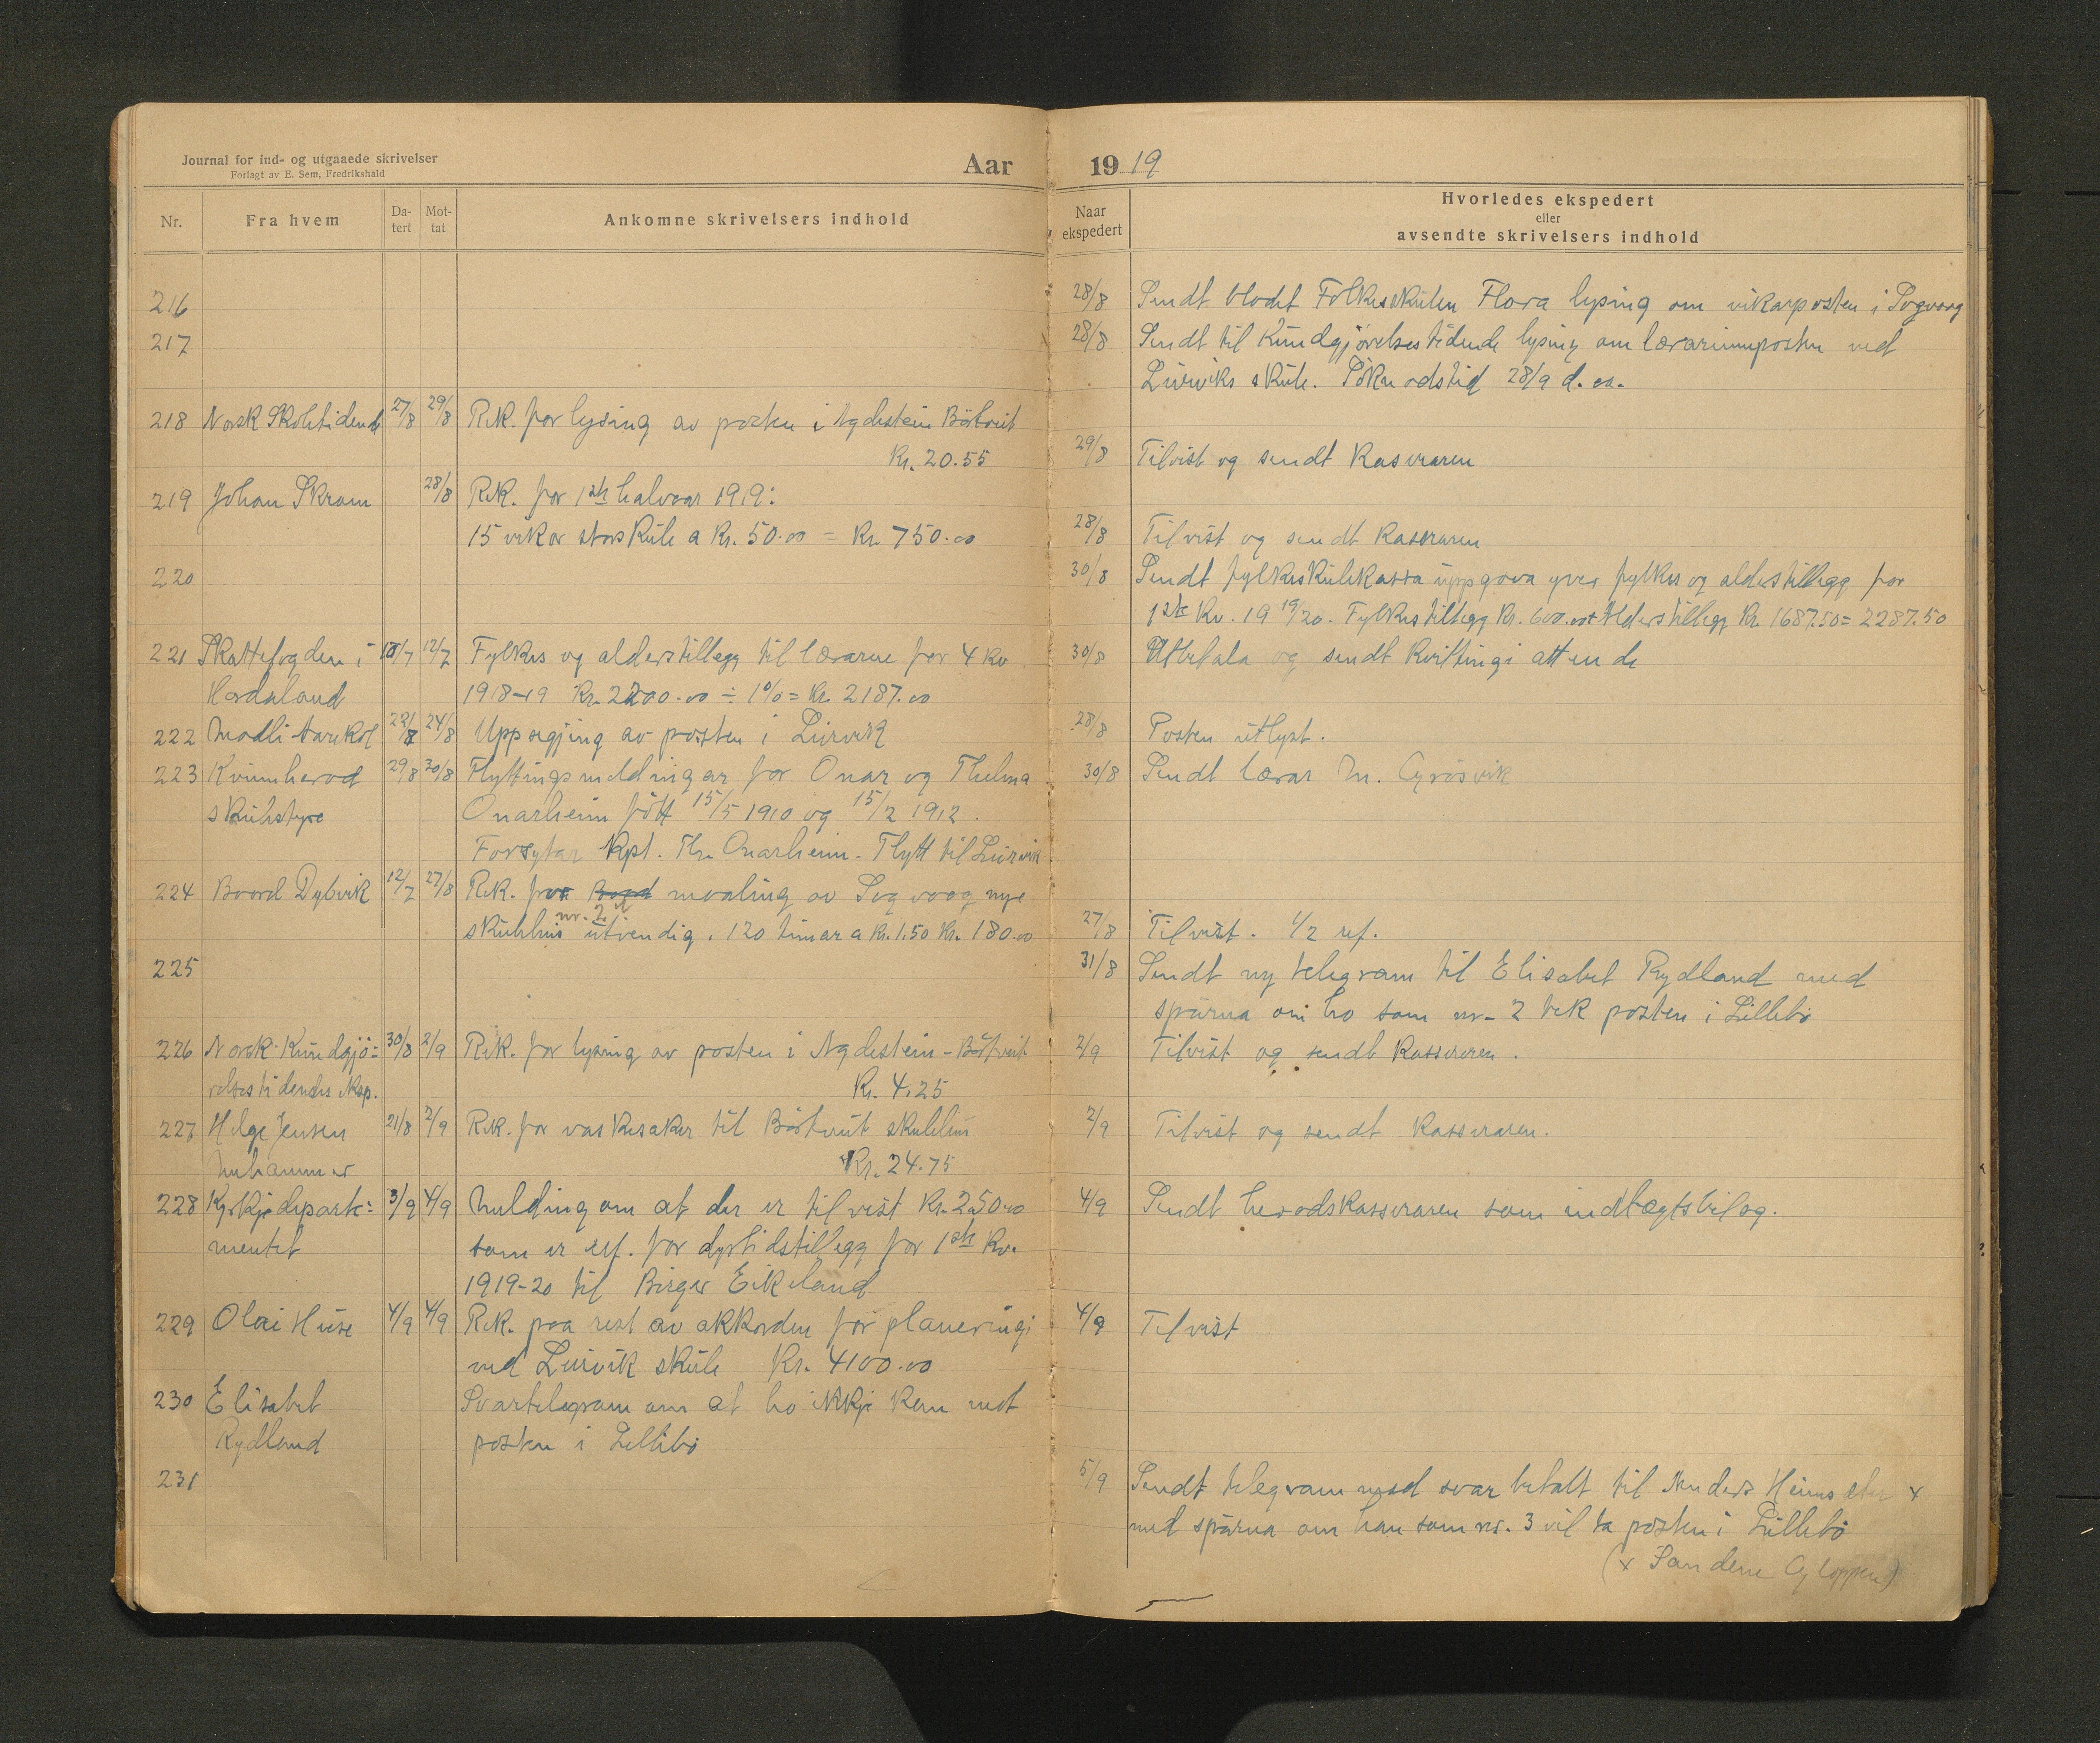 Journal for ind- og utgaaede skrivelser
Forlagt av E. Sem, Fredrikshald
Aar
Nr.
Fra hvem
Da-
tert
Mot-
tat
Ankomne skrivelsers indhold
216
217
218 Norsk Skoletidende 27/8 29/8 Rek. for lysing av posten i Agdestein Börtveit
Kr. 20.55
219 Johan Skram 28/8 Rek. for 1ste halvaar 1919:
15 vikor storskule a Kr. 50.00 = Kr. 750.00
220
221 Skattefogden i 10/7 12/7 Fylkes og alderstillegg til lærarne for 4 kv
Hordaland 1918-19 Kr. 2200.00 ÷ 1% = Kr. 2187.00
222 22/8 24/8 Uppsegjing av posten i Leirvik
223 Kvinnherad 29/8 30/8 Flyttingsmeldingar for Onar og Thelma
skulestyre Onarheim fött 15/5 1910 og 15/2 1912.
Forsytar Kpt. Thr. Onarheim. Flytt til Leirvik
224 Baard Dybvik 12/7 27/8 Rek. for maaling av Sogvaag nye
skulehus nr. 2 utvendig. 120 timar a Kr. 1.50 Kr. 180.00
225
226 Norsk Kundgjö= 30/8 2/9 Rek. for lysing av posten i Agdestein - Börtveit
relsestidendes eksp. Kr. 4.25
227 Helge Jensen 21/8 2/9 Rek. for vaskesaker til Börtveit skulehus
Nuhammer Kr. 24.75
228 Kyrkjedeparte= 3/9 4/9 Melding om at der er tilvist Kr. 250.00
mentet som er ref. for dyrtidstillegg for 1ste kv.
1919-20 til Birger Eikeland
229 Olai Huse 4/9 4/9 Rek. paa rest av akkorden for planeringi
ved Leirvik skule Kr. 4100.00
230 Elisabet Svartelegram om at ho ikkje kan mot
Rydland posten i Lillebö
231
1919
Naar
ekspedert
Hvorledes ekspedert
eller
avsendte skrivelsers indhold
28/8 Sendt bladet Folkeskulen Flora lysing om vikarposten i Sogvaag
28/8 Sendt til Kundgjörelsestidende lysing om lærarinneposten ved
Leirviks skule. Söknadstid 28/9 d. aa.
29/8 Tilvist og sendt kasseraren
28/8 Tilvist og sendt kasseraren
30/8 Sendt fylkesskulekassa uppgaava yver fylkes og alderstillegg for
1ste kv. 19 19/20. Fylkestillegg Kr. 600.00 + Alderstillegg Kr. 1687.50 = 2287.50
30/8 Utbetala og sendt kvittingi attende
28/8 Posten utlyst.
30/8 Sendt lærar M. Gjrösvik
27/8 Tilvist. 1/2 ref.
31/8 Sendt ny telegram til Elisabet Rydland med
spurna om ho som nr. 2 tek posten i Lillebö
2/9 Tilvist og sendt kasseraren.
2/9 Tilvist og sendt kasseraren.
4/9 Sendt heradskasseraren som indtægtsbilag.
4/9 Tilvist
5/9 Sendt telegram med svar betalt til Anders x
med spurna om han som nr. 3 vil ta posten i Lillebö
(x Sandene Gloppen)